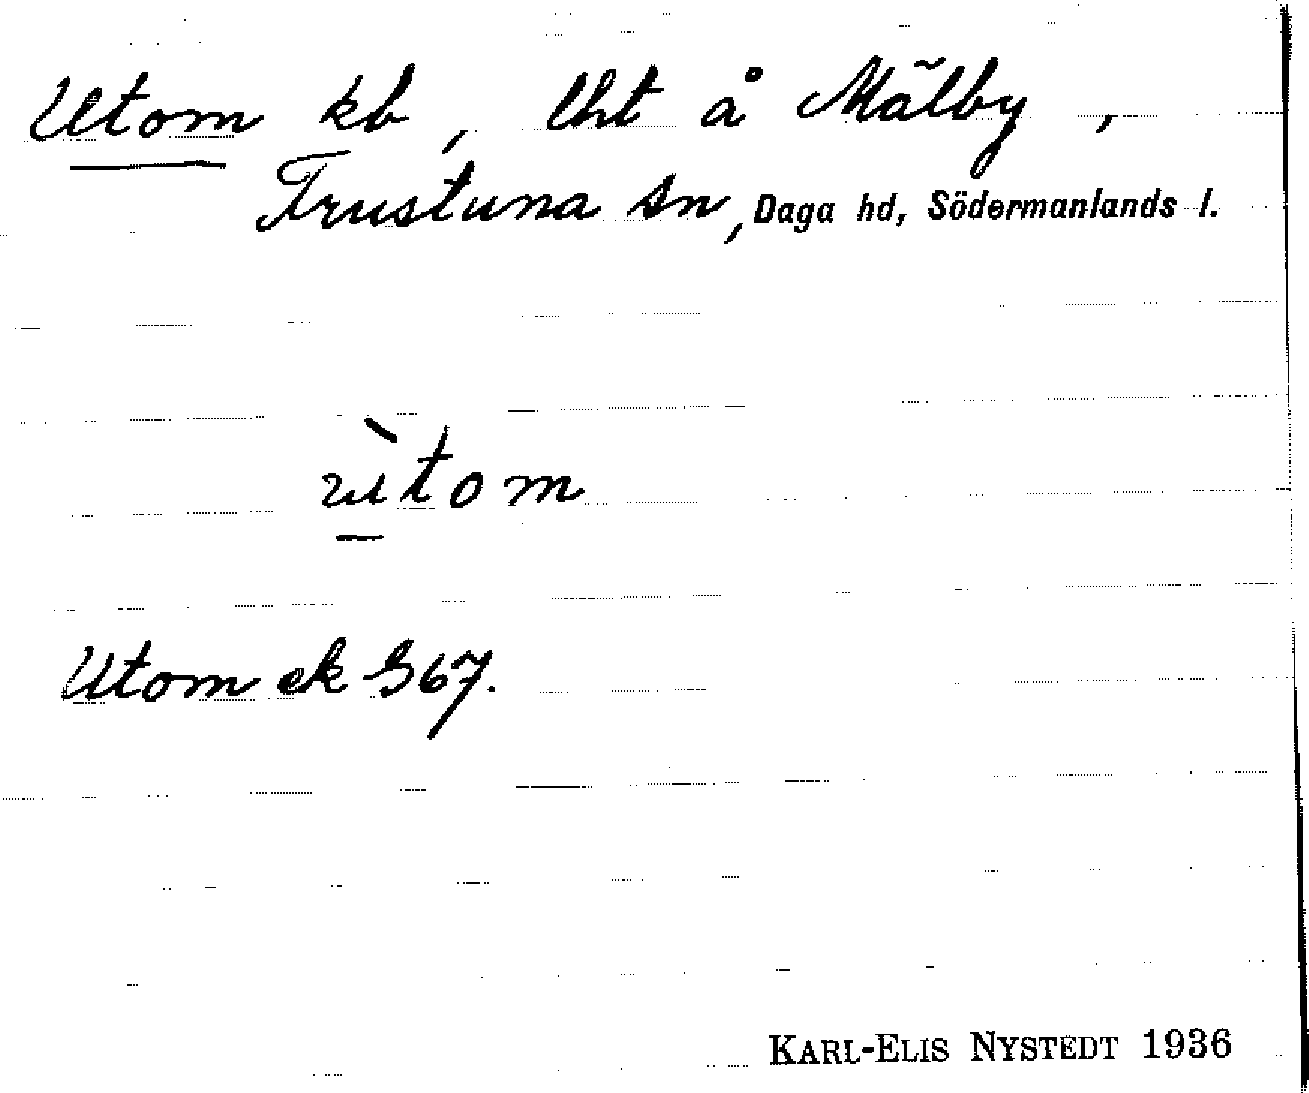 Utom kb, lht å Mälby,
Frustuna sn, Daga hd, Södermanlands l.
ùtom
Utom ek 367.
KARL-ELIS NYSTEDT 1936